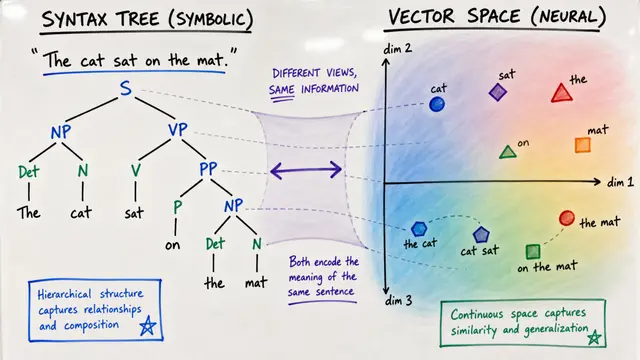 SYNTAX TREE (SYMBOLIC)
"The cat sat on the mat."
S
NP
VP
Det
N
V
PP
The
cat
sat
P
NP
on
Det
N
the
mat
Hierarchical structure
captures relationships
and composition
DIFFERENT VIEWS,
SAME INFORMATION
Both encode the
meaning of the
same sentence
VECTOR SPACE (NEURAL)
dim 2
cat
sat
the
on
mat
dim 1
the cat
cat sat
on the mat
the mat
dim 3
Continuous space captures
similarity and generalization